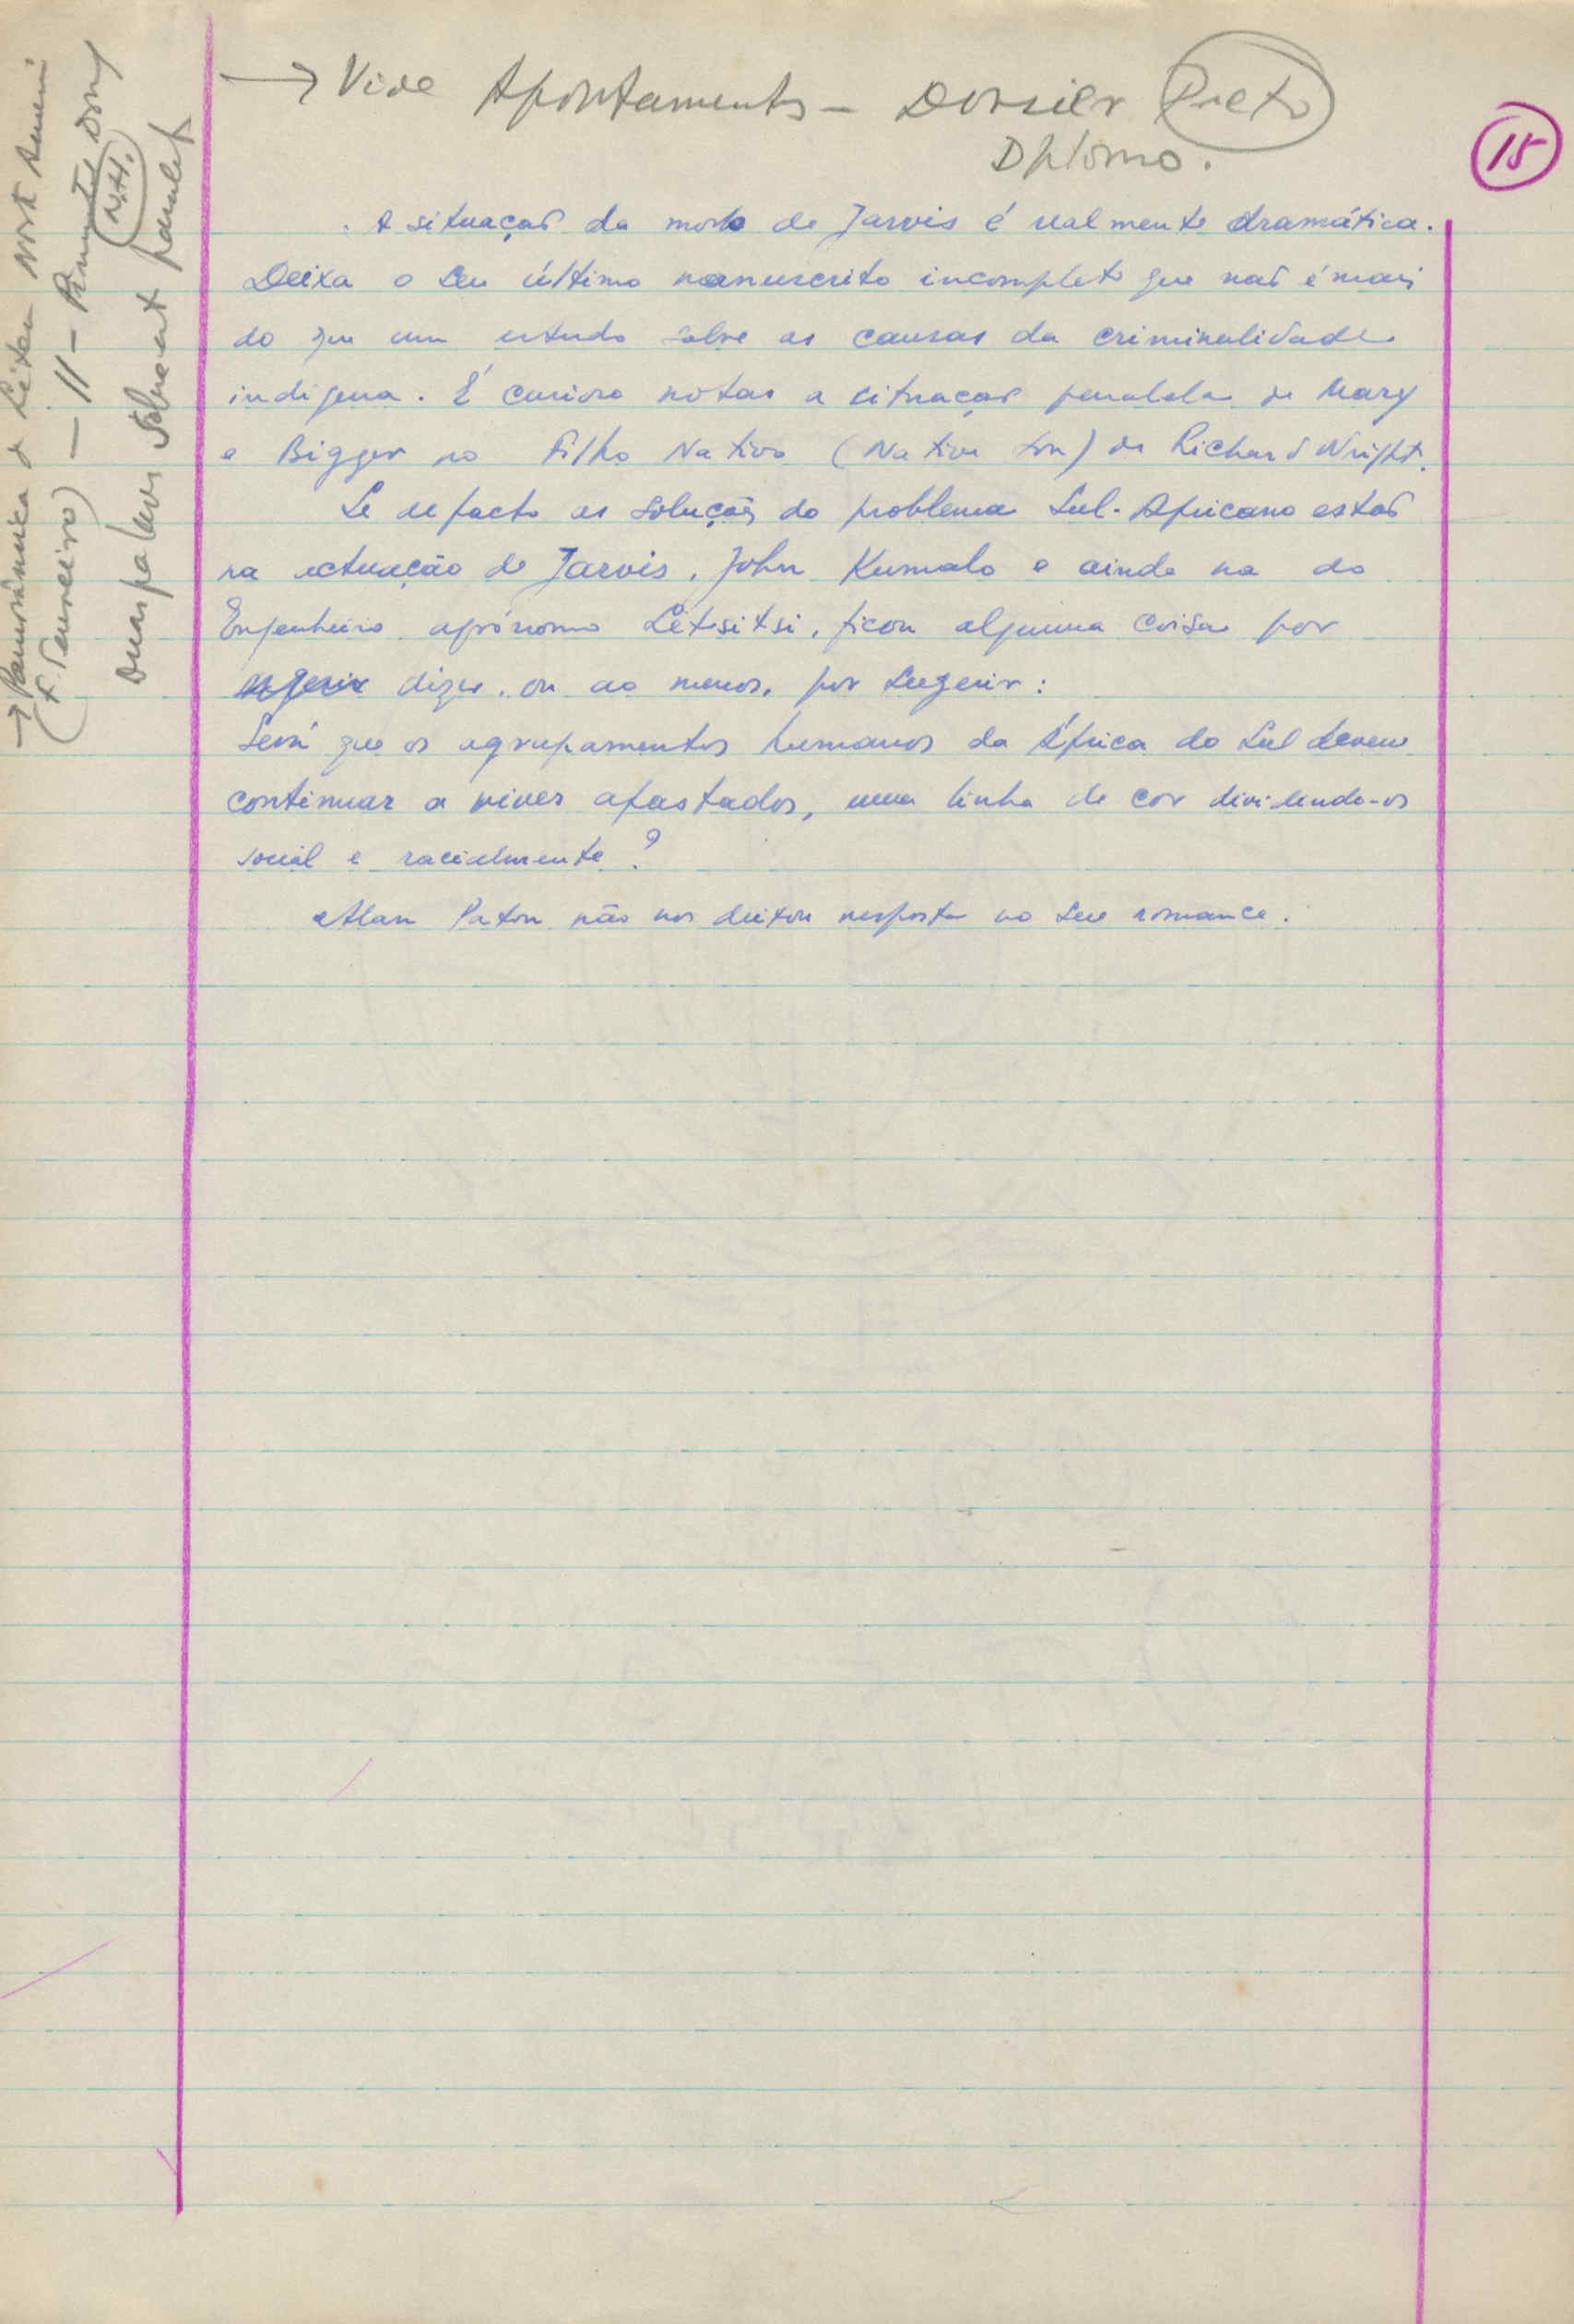 → Vide Apontamentos – Dossier Preto
Dhlomo.
15
A situação da morte de Jarvis é realmente dramática.
Deixa o seu último manuscrito incompleto que não é mais
do que um estudo sobre as causas da criminalidade
indígena. É curioso notar a situação paralela de Mary
e Bigger no Filho Nativo (Native Son) de Richard Wright.
Se de facto as soluções do problema Sul-Africano estão
na actuação de Jarvis, John Kumalo e ainda na do
Engenheiro agrónomo Letsitsi, ficou alguma coisa por
dizer, ou ao menos, por sugerir:
Será que os agrupamentos humanos da África do Sul devem
continuar a viver afastados, uma linha de cor dividindo-os
social e racialmente?
Alan Paton não nos deixou resposta no seu romance.
→ Panorâmica d Liter Nort Ameri
(F. Tenreiro) — 11 –
N.H.
Duas palavras sobre